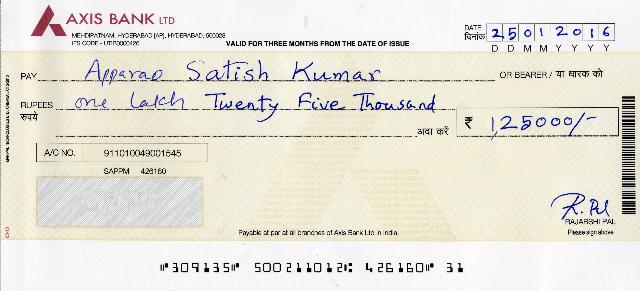 AXIS BANK LTD
MEHDIPATNAM, HYDERABAD [AP], HYDERABAD, 500028
IFS CODE - UTIB0000426
VALID FOR THREE MONTHS FROM THE DATE OF ISSUE
DATE
दिनांक
25012016
D D M M Y Y Y Y
PAY Apparao Satish Kumar OR BEARER / या धारक को
RUPEES one Lakh Twenty Five Thousand
रुपये
अदा करें ₹ 1,25000/-
A/C NO. 911010049001545
SAPPM 426160
R. Pal
RAJARSHI PAL
Please sign above
Payable at par at all branches of Axis Bank Ltd in India.
⑈309135⑈ 500211012⑆ 426160⑈ 31